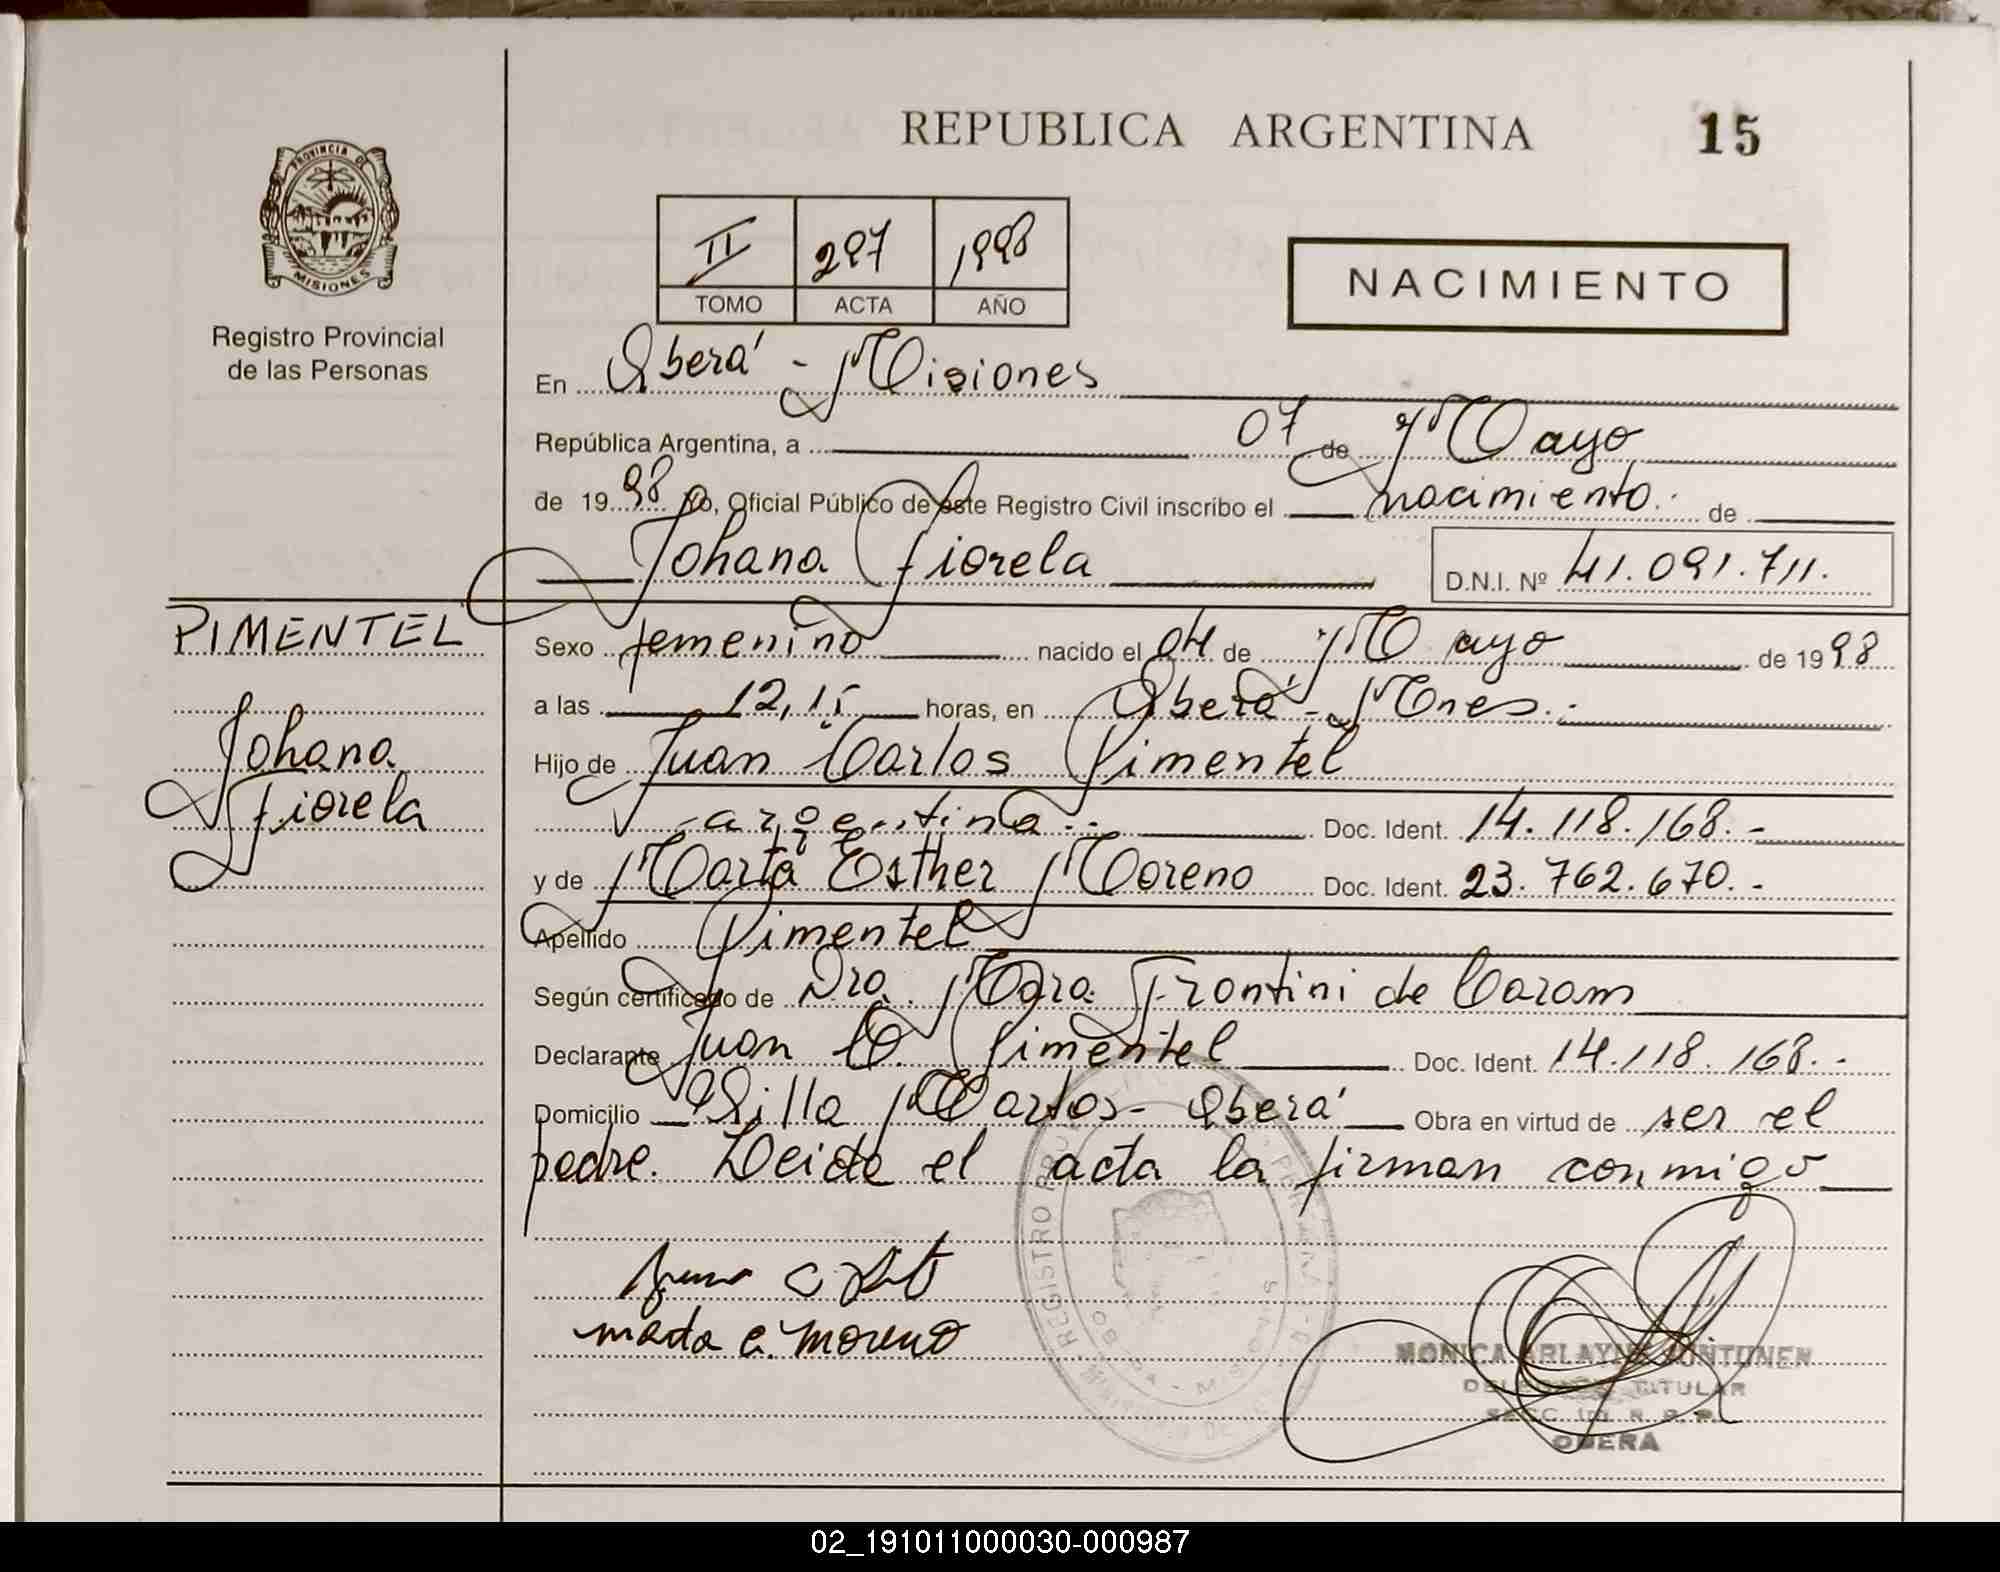 REPUBLICA ARGENTINA 15
PROVINCIA DE
MISIONES
Registro Provincial
de las Personas
II 297 1998
TOMO ACTA AÑO
NACIMIENTO
En Oberá - Misiones
República Argentina, a 07 de Mayo
de 1998 Yo, Oficial Público de este Registro Civil inscribo el nacimiento. de
Johana Fiorela D.N.I. Nº 41.091.711.
PIMENTEL
Johana
Fiorela
Sexo femenino nacido el 04 de Mayo de 1998
a las 12,15 horas, en Oberá - Mnes.-
Hijo de Juan Carlos Pimentel
- argentina.- Doc. Ident. 14.118.168.-
y de Marta Esther Moreno Doc. Ident. 23.762.670.-
Apellido Pimentel
Según certificado de Dra. Mara Frontini de Caram
Declarante Juan C. Pimentel Doc. Ident. 14.118.168.-
Domicilio Villa Martos - Oberá Obra en virtud de ser el
padre. Leida el acta la firman conmigo
Marta E. Moreno
MONICA ARLAYNE
TITULAR
OBERA
02_191011000030-000987